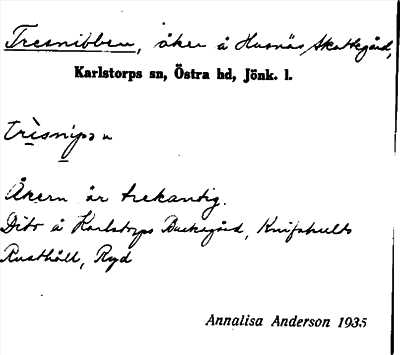 Tresnibben, åker å Husnäs Skattegård,
Karlstorps sn, Östra hd, Jönk. l.
trìsnipən
Åkern är trekantig.
Dito å Karlstorps Backegård, Knifshults
Rusthåll, Ryd
Annalisa Anderson 1935